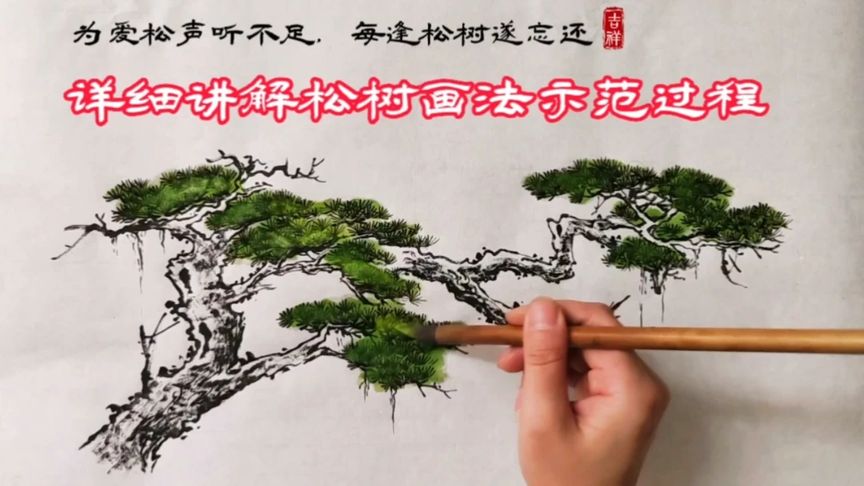 为爱松声听不足，每逢松树遂忘还
吉祥
详细讲解松树画法示范过程